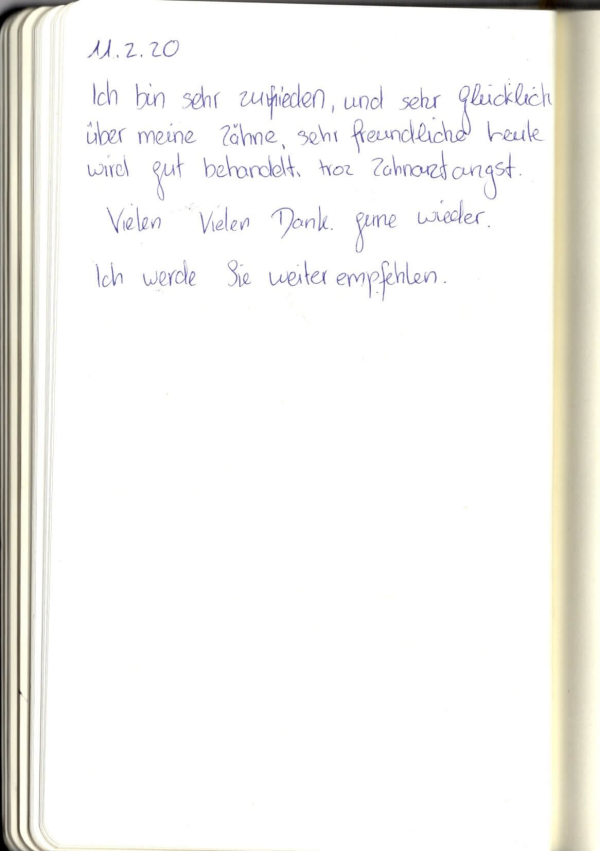 11.2.20
Ich bin sehr zufrieden, und sehr glücklich
über meine Zähne, sehr freundliche Leute
wird gut behandelt. troz Zahnarztangst.
Vielen Vielen Dank. gerne wieder.
Ich werde Sie weiter empfehlen.